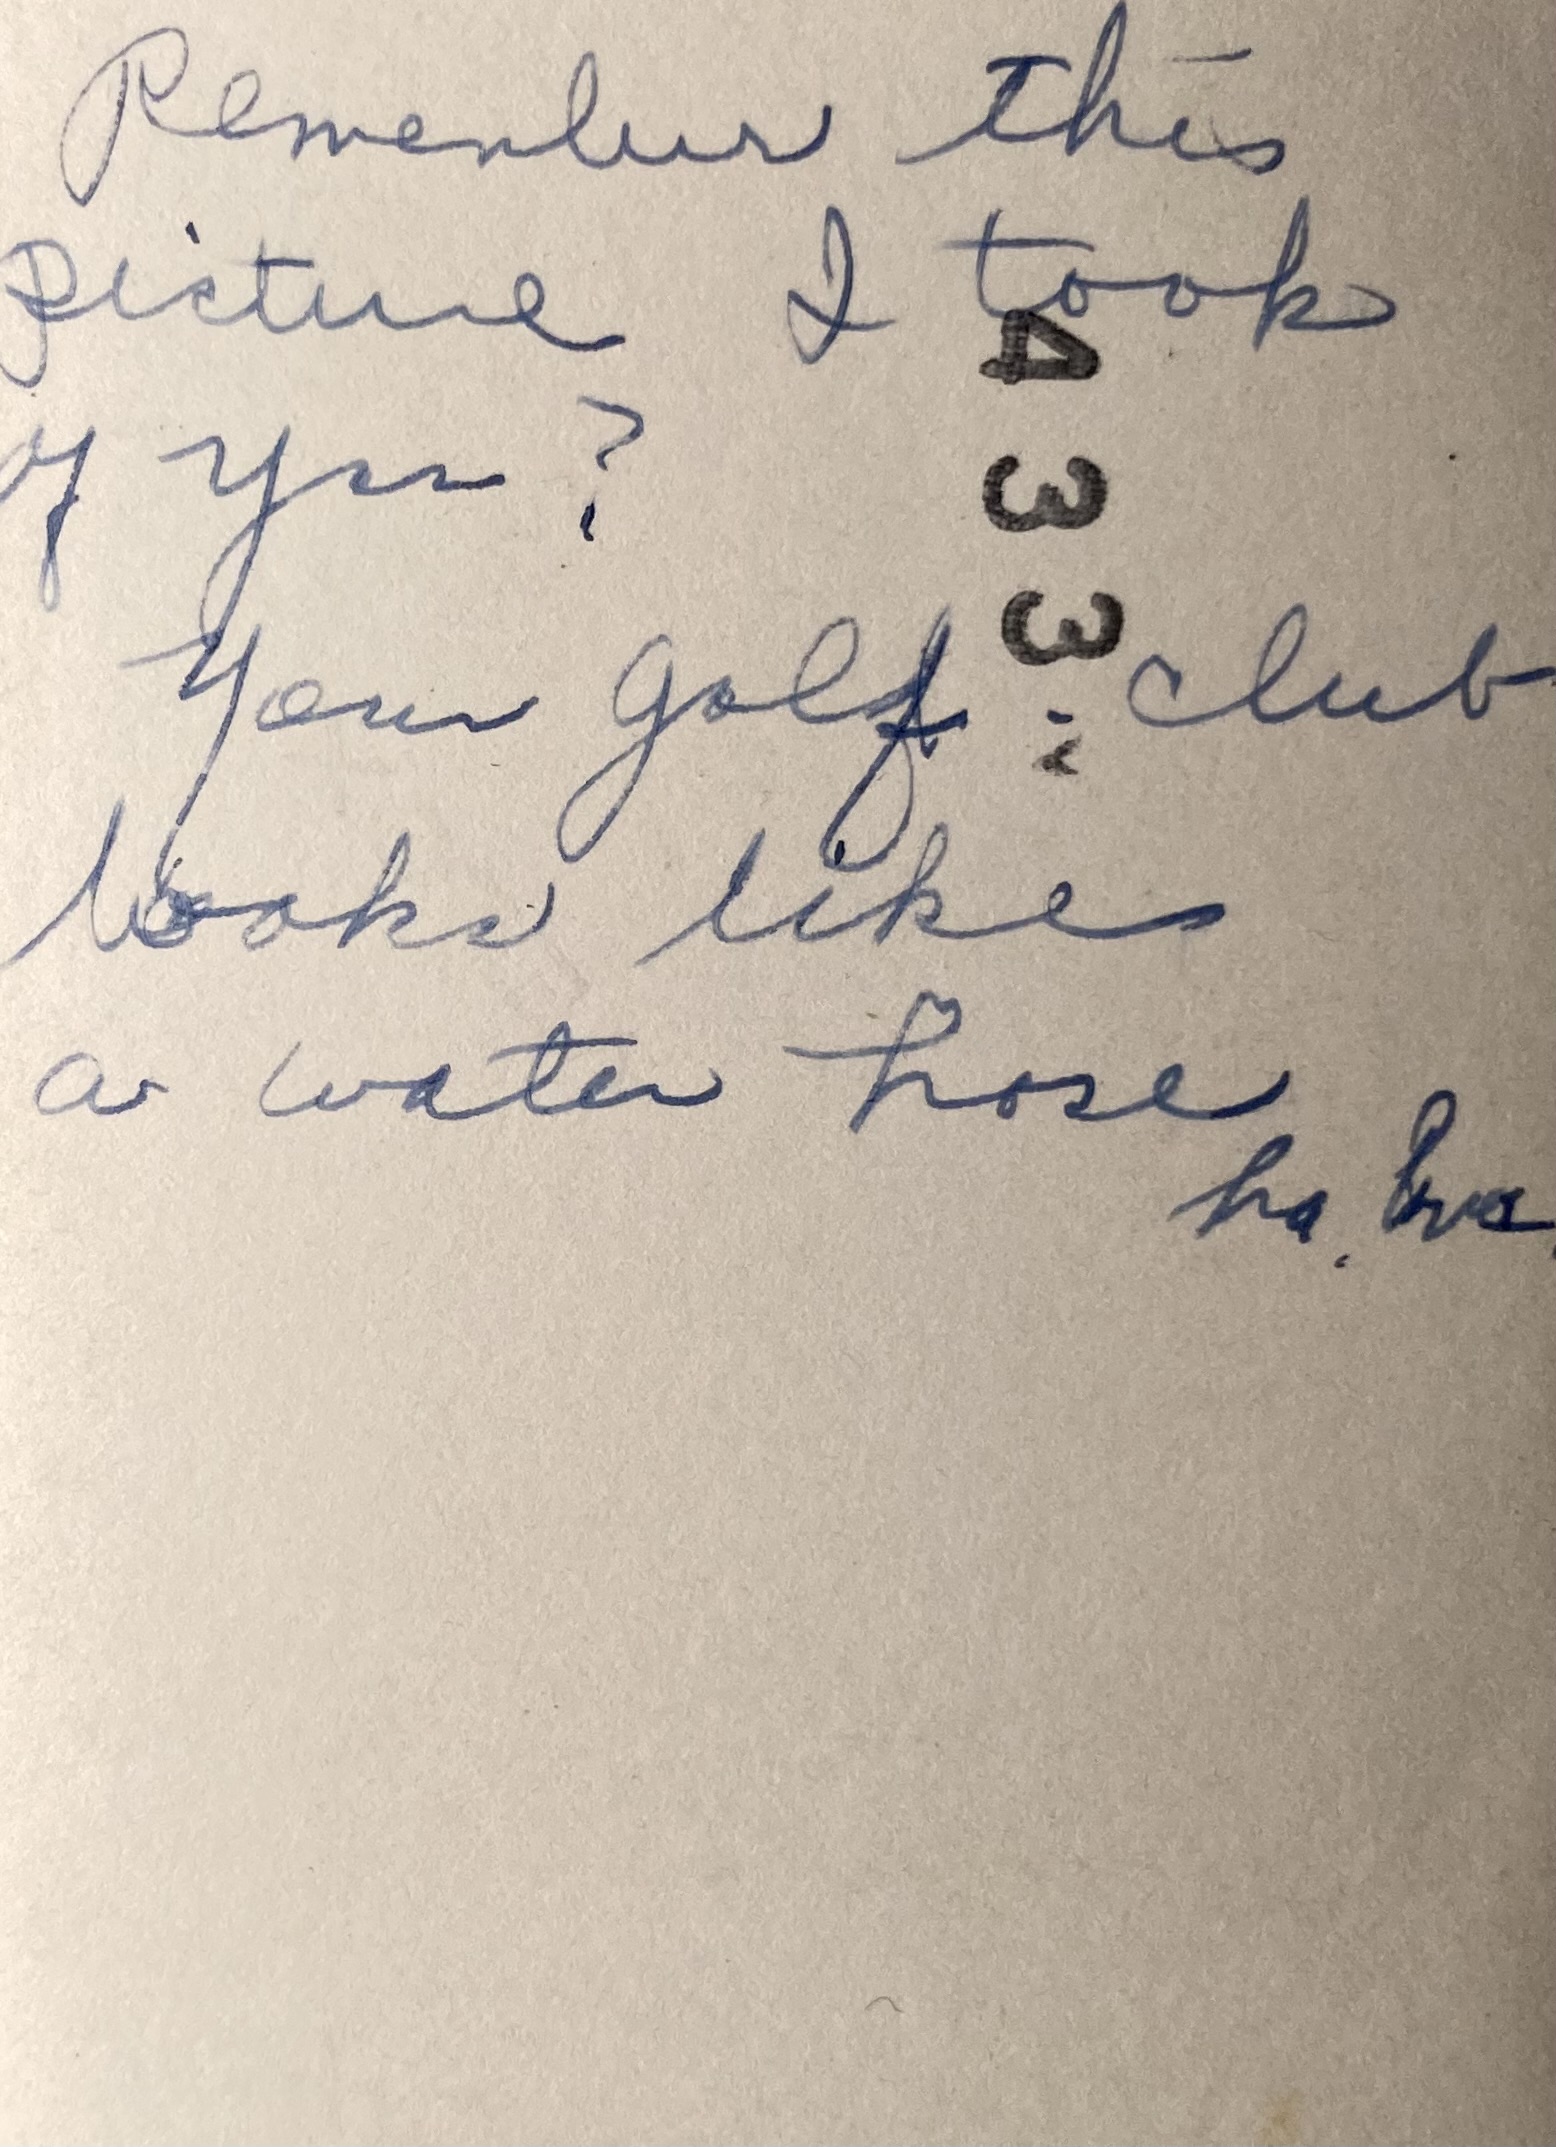 Remember this
picture I took
of you?
Your golf club
looks like
a water hose
ha. ha.
433